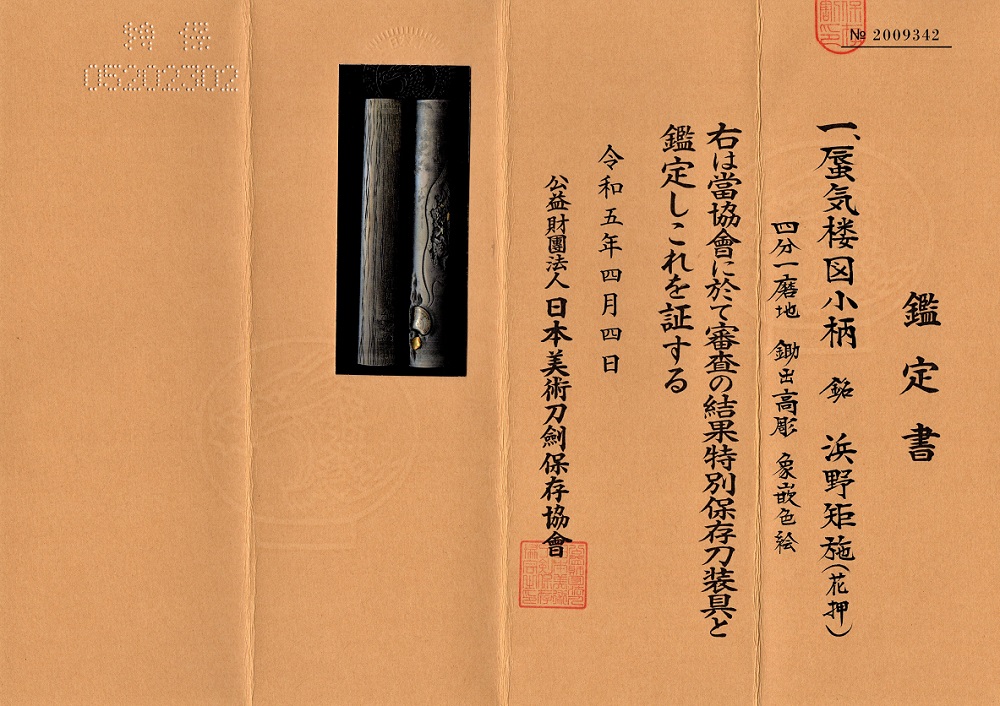 № 2009342
鑑定書
一、蜃気楼図小柄 銘 浜野矩施(花押)
四分一磨地 鋤出高彫 象嵌色絵
右は當協會に於て審査の結果特別保存刀装具と
鑑定しこれを証する
令和五年四月四日
公益財團法人 日本美術刀劍保存協會
特保
05202302